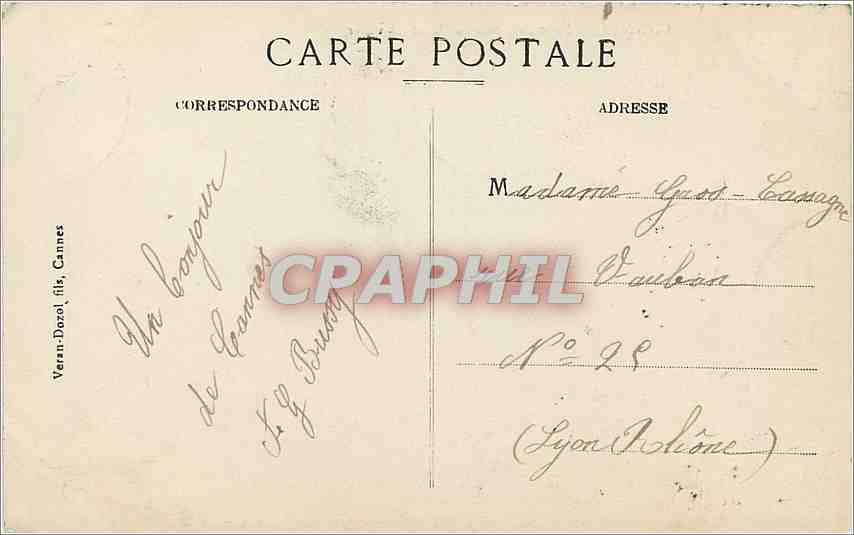 CARTE POSTALE
CORRESPONDANCE
ADRESSE
Un bonjour
de Cannes
G Bussy
Madame Gros-Cassagne
rue Vauban
No 25
(Lyon Rhône)
Veran-Dozol fils, Cannes
CPAPHIL